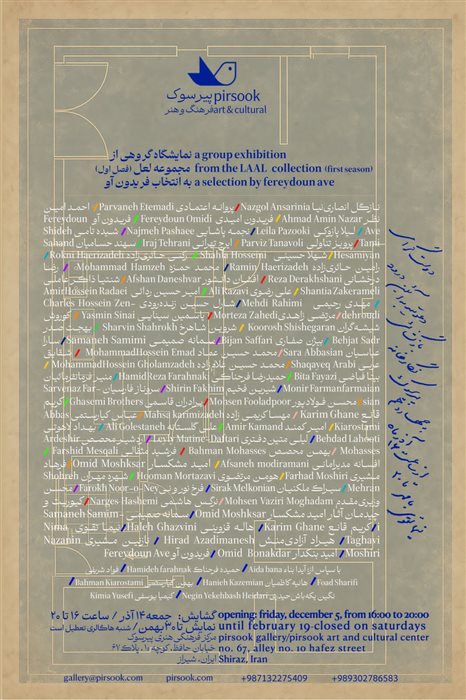 پیرسوک pirsook
فرهنگ و هنر art & cultural
نمایشگاه گروهی از a group exhibition
مجموعه لعل (فصل اول) from the LAAL collection (first season)
به انتخاب فریدون آو a selection by fereydoun ave
نازگل انصاری‌نیا Nazgol Ansarinia / پروانه اعتمادی Parvaneh Etemadi / احمد امین
نظر Ahmad Amin Nazar / فریدون امیدی Fereydoun Omidi / فریدون آو Fereydoun
Ave / لیلا پازوکی Leila Pazooki / نجمه پاشایی Najmeh Pashaee / شیده تامی Shideh
Tami / پرویز تناولی Parviz Tanavoli / ایرج تهرانی Iraj Tehrani / سهند حسامیان Sahand
Hesamiyan / شهلا حسینی Shahla Hosseini / رکنی حائری‌زاده Rokni Haerizadeh /
رامین حائری‌زاده Ramin Haerizadeh / محمد حمزه Mohammad Hamzeh / رضا
درخشانی Reza Derakhshani / افشان دانشور Afshan Daneshvar / شنتیا ذاکرعاملی
Shantia Zakerameli / علی رضوی Ali Razavi / امیرحسین ردائی AmirHossein Radaei
/ مهدی رحیمی Mehdi Rahimi / شارل حسین زنده‌رودی Charles Hossein Zen-
dehroudi / مرتضی زاهدی Morteza Zahedi / یاسمین سینایی Yasmin Sinai / کوروش
شیشه‌گران Koorosh Shishegaran / شروین شاهرخ Sharvin Shahrokh / بهجت صدر
Behjat Sadr / بیژن صفاری Bijan Saffari / سمانه صمیمی Samaneh Samimi / سارا
عباسیان Sara Abbasian / محمد حسین عماد MohammadHossein Emad / شقایق
عربی Shaqayeq Arabi / محمد حسین غلامزاده MohammadHossein Gholamzadeh /
بیتا فیاضی Bita Fayazi / حمیدرضا فرحناکی HamidReza Farahnaki / منیر فرمانفرمائیان
Monir Farmanfarmaian / شیرین فخیم Shirin Fakhim / سروناز فارسیان Sarvenaz Far-
sian / محسن فولادپور Mohsen Fooladpoor / برادران قاسمی Ghasemi Brothers / کریم
قانع Karim Ghane / مهسا کریمی زاده Mahsa karimizadeh / عباس کیارستمی Abbas
Kiarostami / امیر کمند Amir Kamand / علی گلستانه Ali Golestaneh / بهداد لاهوتی
Behdad Lahooti / لیلی متین دفتری Leyly Matine-Daftari / اردشیر محصص Ardeshir
Mohasses / بهمن محصص Bahman Mohasses / فرشید مثقالی Farshid Mesqali /
افسانه مدیرامانی Afsaneh modiramani / امید مشکسار Omid Moshksar / فرهاد
مشیری Farhad Moshiri / هومن مرتضوی Hooman Mortazavi / شهره مهران Shohreh
Mehran / سیراک ملکنیان Sirak Melkonian / فرخ نوروزنی Farokh Noor-o-Ney / محسن
وزیری مقدم Mohsen Vaziri Moghadam / نرگس هاشمی Narges Hashemi / کیوریت و
چیدمان آثار امید مشکسار Omid Moshksar / سمانه صمیمی Samaneh Samim-
i / کریم قانع Karim Ghane / هاله قزوینی Haleh Ghazvini / نیما تقوی Nima
Taghavi / هیراد آزادمنش Hirad Azadimanesh / نازنین مشیری Nazanin
Moshiri / امید بنکدار Omid Bonakdar / فریدون آو Fereydoun Ave
با سپاس از: آیدا بنا Aida bana / حمیده فرحناک Hamideh farahnak / فواد شریفی
Foad Sharifi / هانیه کاظمیان Hanieh Kazemian / بهمن کیارستمی Bahman Kiarostami /
نگین یکه‌باش حیدری Negin Yekehbash Heidari / کیمیا یوسفی Kimia Yusefi
گشایش: جمعه ۱۴ آذر / ساعت ۱۶ تا ۲۰ opening: friday, december 5, from 16:00 to 20:00
نمایش تا ۳۰ بهمن / شنبه‌ها گالری تعطیل است until february 19-closed on saturdays
مرکز فرهنگی هنری پیرسوک pirsook gallery/pirsook art and cultural center
خیابان حافظ، کوچه ۱۰، پلاک ۶۷ no. 67, alley no. 10 hafez street
ایران، شیراز Shiraz, Iran
gallery@pirsook.com pirsook.com +987132275409 +989302786583